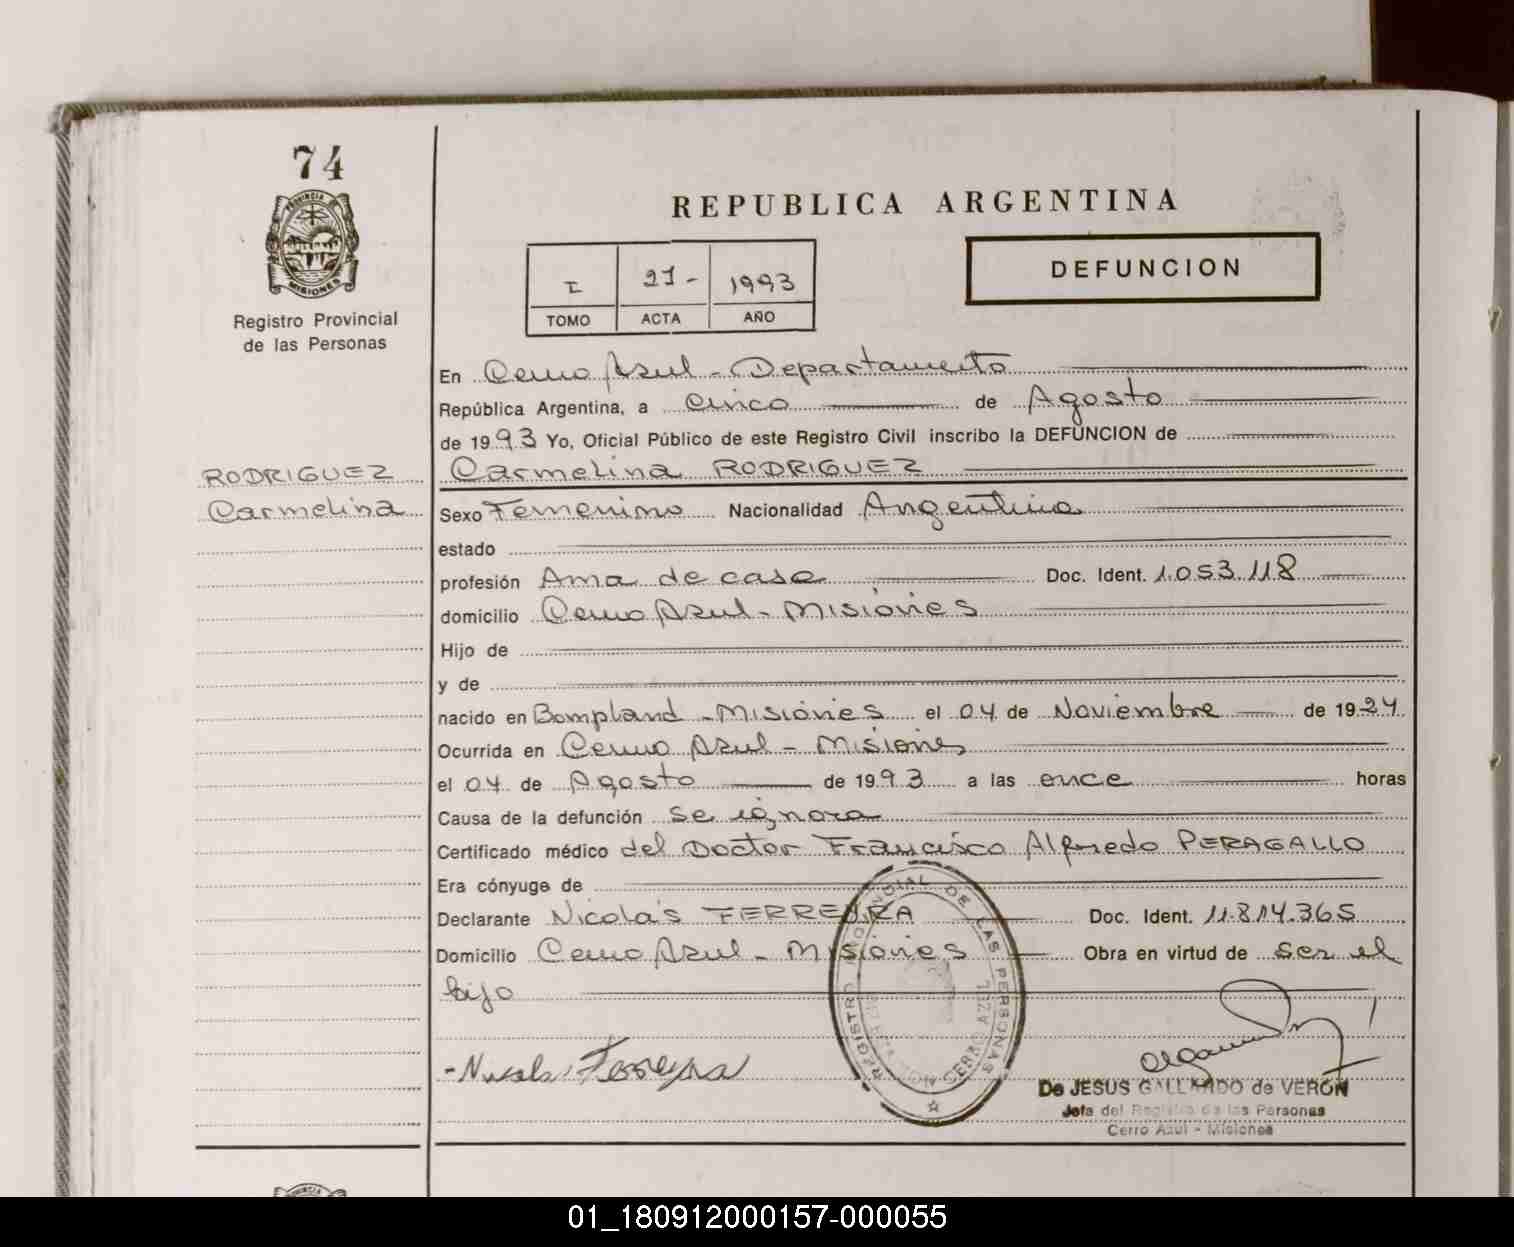 74
PROVINCIA DE
MISIONES
Registro Provincial
de las Personas
REPUBLICA ARGENTINA
I 21- 1993
TOMO ACTA AÑO
DEFUNCION
En Cerro Azul - Departamento
República Argentina, a cinco de Agosto
de 1993 Yo, Oficial Público de este Registro Civil inscribo la DEFUNCION de
RODRIGUEZ
Carmelina
Carmelina RODRIGUEZ
Sexo Femenino Nacionalidad Argentina
estado
profesión Ama de casa Doc. Ident. 1.053.118
domicilio Cerro Azul - Misiones
Hijo de
y de
nacido en Bompland - Misiones el 04 de Noviembre de 1924
Ocurrida en Cerro Azul - Misiones
el 04 de Agosto de 1993 a las once horas
Causa de la defunción se ignora
Certificado médico del Doctor Francisco Alfredo PERAGALLO
Era cónyuge de
Declarante Nicolás FERREYRA Doc. Ident. 11.814.365
Domicilio Cerro Azul - Misiones Obra en virtud de ser el
hijo
REGISTRO PROVINCIAL DE LAS PERSONAS
CERRO AZUL
Ferreyra
De JESUS GALLARDO de VERON
Jefa del Registro de las Personas
Cerro Azul - Misiones
01_180912000157-000055